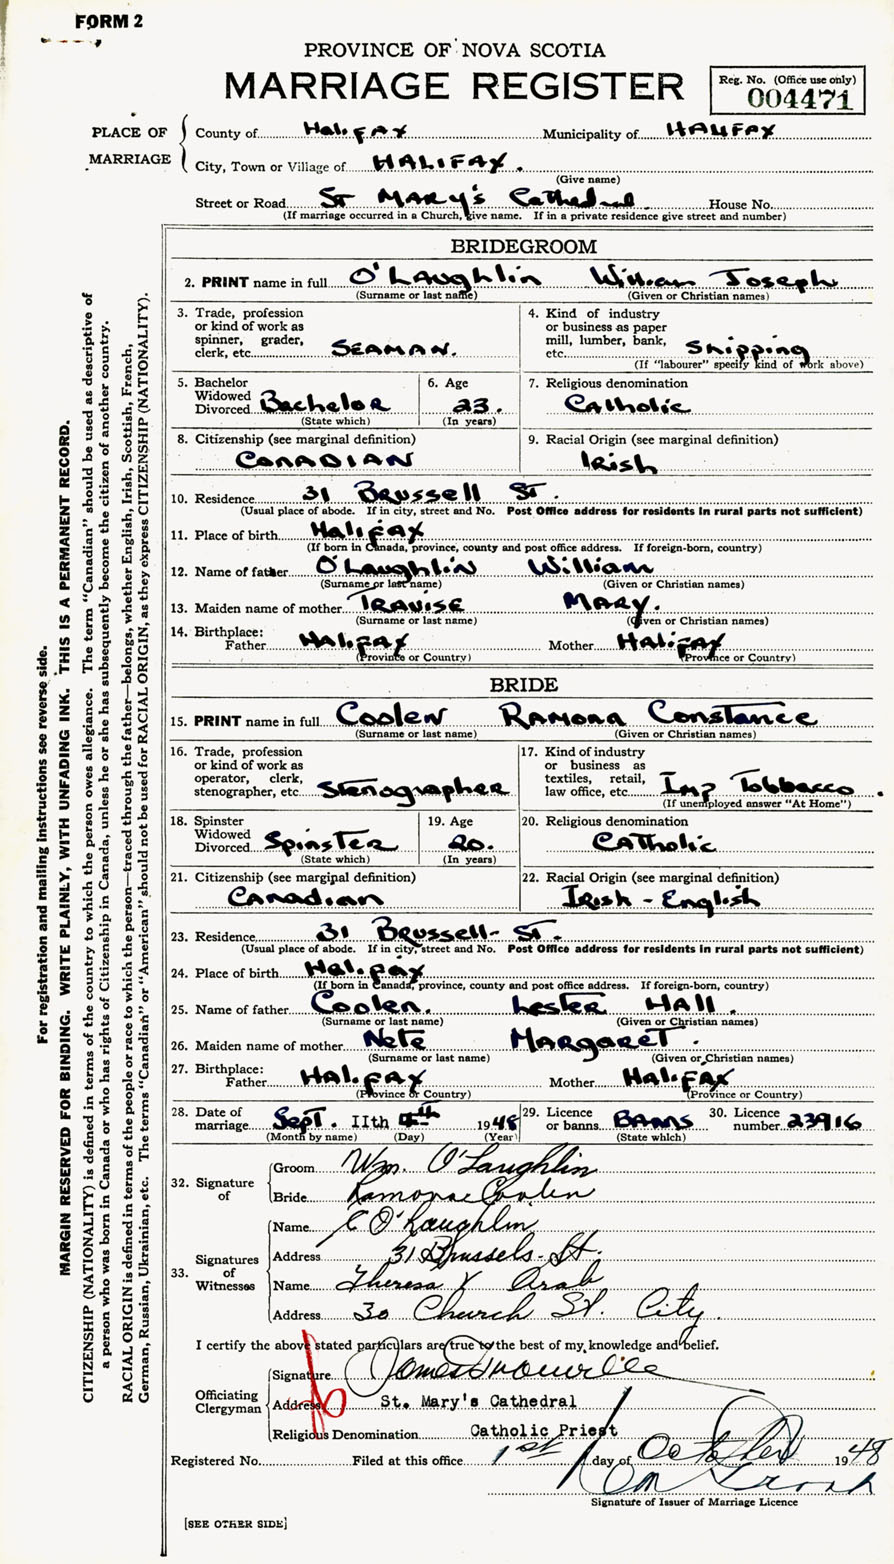 FORM 2
PROVINCE OF NOVA SCOTIA
MARRIAGE REGISTER
Reg. No. (Office use only)
004471
PLACE OF MARRIAGE
County of Halifax Municipality of HALIFAX
City, Town or Village of HALIFAX.
(Give name)
Street or Road St MARY's Cathedral House No.
(If marriage occurred in a Church, give name. If in a private residence give street and number)
BRIDEGROOM
2. PRINT name in full O'Laughlin William Joseph
(Surname or last name) (Given or Christian names)
3. Trade, profession
or kind of work as
spinner, grader,
clerk, etc. SEAMAN.
4. Kind of industry
or business as paper
mill, lumber, bank,
etc. Shipping
(If "labourer" specify kind of work above)
5. Bachelor
Widowed
Divorced Bachelor
(State which)
6. Age
23.
(In years)
7. Religious denomination
Catholic
8. Citizenship (see marginal definition)
CANADIAN
9. Racial Origin (see marginal definition)
Irish
10. Residence 31 Brussell St.
(Usual place of abode. If in city, street and No. Post Office address for residents in rural parts not sufficient)
11. Place of birth Halifax
(If born in Canada, province, county and post office address. If foreign-born, country)
12. Name of father O'Laughlin William
(Surname or last name) (Given or Christian names)
13. Maiden name of mother TRAVISE MARY.
(Surname or last name) (Given or Christian names)
14. Birthplace:
Father Halifax Mother Halifax
(Province or Country) (Province or Country)
BRIDE
15. PRINT name in full Coolen Ramona Constance
(Surname or last name) (Given or Christian names)
16. Trade, profession
or kind of work as
operator, clerk,
stenographer, etc. Stenographer
17. Kind of industry
or business as
textiles, retail,
law office, etc. Imp Tobbacco.
(If unemployed answer "At Home")
18. Spinster
Widowed
Divorced Spinster
(State which)
19. Age
20.
(In years)
20. Religious denomination
Catholic
21. Citizenship (see marginal definition)
Canadian
22. Racial Origin (see marginal definition)
Irish - English
23. Residence 31 Brussell- St.
(Usual place of abode. If in city, street and No. Post Office address for residents in rural parts not sufficient)
24. Place of birth Halifax
(If born in Canada, province, county and post office address. If foreign-born, country)
25. Name of father Coolen. Lester HALL.
(Surname or last name) (Given or Christian names)
26. Maiden name of mother Nete MARgaret.
(Surname or last name) (Given or Christian names)
27. Birthplace:
Father Halifax Mother Halifax
(Province or Country) (Province or Country)
28. Date of
marriage Sept. 11th 4th 1948
(Month by name) (Day) (Year)
29. Licence
or banns BANNS
(State which)
30. Licence
number 23916
32. Signature
of
Groom Wm. O'Laughlin
Bride Ramona Coolen
33. Signatures
of
Witnesses
Name C O'Laughlin
Address 31 Brussels- St.
Name Theresa Arab
Address 30 Church St. City.
I certify the above stated particulars are true to the best of my knowledge and belief.
Officiating
Clergyman
Signature James
Address St. Mary's Cathedral
Religious Denomination Catholic Priest
Registered No. Filed at this office 1st day of October 1948
Signature of Issuer of Marriage Licence
[SEE OTHER SIDE]
For registration and mailing instructions see reverse side.
MARGIN RESERVED FOR BINDING. WRITE PLAINLY, WITH UNFADING INK. THIS IS A PERMANENT RECORD.
CITIZENSHIP (NATIONALITY) is defined in terms of the country to which the person owes allegiance. The term "Canadian" should be used as descriptive of
a person who was born in Canada or who has rights of Citizenship in Canada, unless he or she has subsequently become the citizen of another country.
RACIAL ORIGIN is defined in terms of the people or race to which the person—traced through the father—belongs, whether English, Irish, Scottish, French,
German, Russian, Ukrainian, etc. The terms "Canadian" or "American" should not be used for RACIAL ORIGIN, as they express CITIZENSHIP (NATIONALITY).